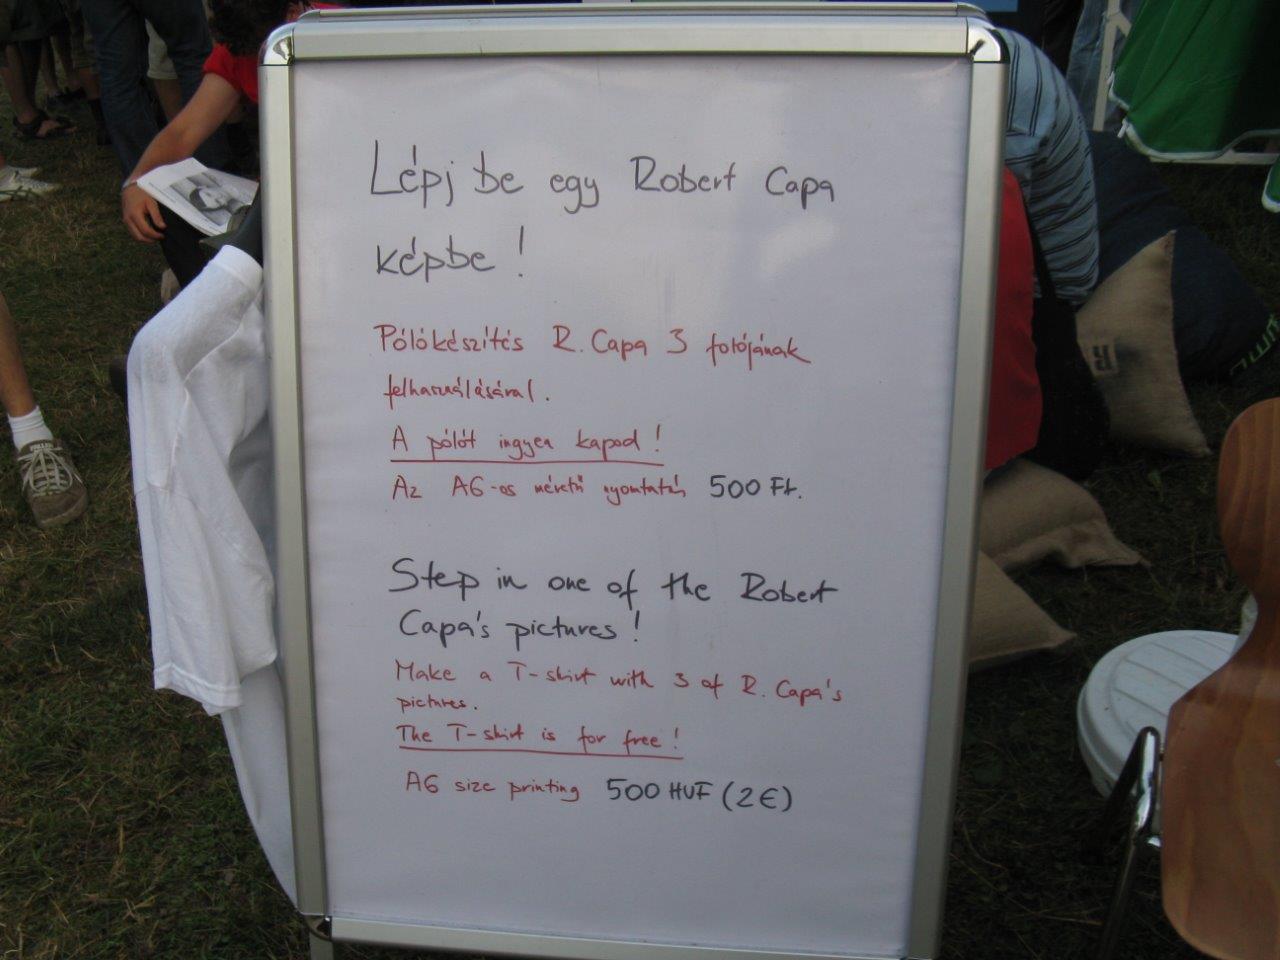 Lépj be egy Robert Capa
képbe!
Pólókészítés R. Capa 3 fotójának
felhasználásával.
A pólót ingyen kapod!
Az A6-os méretű nyomtatás 500 Ft.
Step in one of the Robert
Capa's pictures!
Make a T-shirt with 3 of R. Capa's
pictures.
The T-shirt is for free!
A6 size printing 500 HUF (2€)